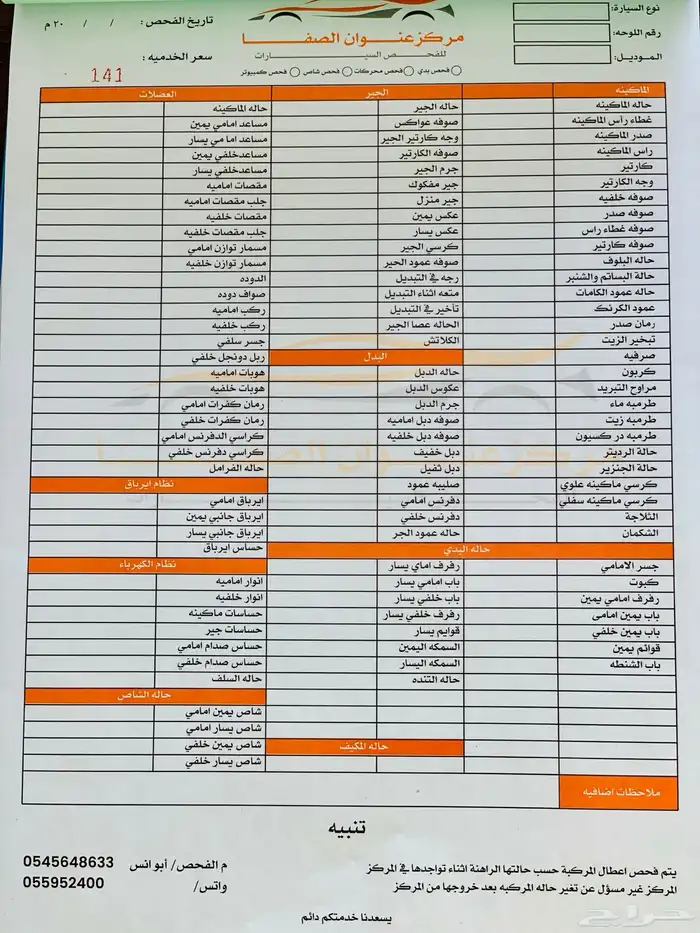 نوع السيارة:
رقم اللوحه:
الموديل:
مركز عنوان الصفا
للفحص السيارات
فحص بدي فحص محركات فحص شاص فحص كمبيوتر
تاريخ الفحص : / / ٢٠ م
سعر الخدميه :
141
الماكينه
حاله الماكينه
غطاء رأس الماكينه
صدر الماكينه
راس الماكينه
كارتير
وجه الكارتير
صوفه خلفيه
صوفه صدر
صوفه غطاء راس
صوفه كارتير
حاله البلوف
حالة البساتم والشنبر
حاله عمود الكامات
عمود الكرنك
رمان صدر
تبخير الزيت
صرفيه
كربون
مراوح التبريد
طرمبه ماء
طرمبه زيت
طرمبه دركسيون
حالة الرديتر
حالة الجنزير
كرسي ماكينه علوي
كرسي ماكينه سفلي
الثلاجة
الشكمان
الجير
حاله الجير
صوفه عواكس
وجه كارتير الجير
صوفه الكارتير
جرم الجير
جير مفكوك
جير منزل
عكس يمين
عكس يسار
كرسي الجير
صوفه عمود الجير
رجه في التبديل
متعه اثناء التبديل
تأخير في التبديل
الحاله عصا الجير
الكلاتش
البدل
حاله الدبل
عكوس الدبل
جرم الدبل
صوفه دبل اماميه
صوفه دبل خلفيه
دبل خفيف
دبل ثقيل
صليبه عمود
دفرنس امامي
دفرنس خلفي
حاله عمود الجر
العضلات
حاله الماكينه
مساعد امامي يمين
مساعد اما مي يسار
مساعدخلفي يمين
مساعدخلفي يسار
مقصات اماميه
جلب مقصات اماميه
مقصات خلفيه
جلب مقصات خلفيه
مسمار توازن امامي
مسمار توازن خلفيه
الدوده
صواف دوده
ركب اماميه
ركب خلفيه
جسر سلفي
ربل دونجل خلفي
هوبات اماميه
هوبات خلفيه
رمان كفرات امامي
رمان كفرات خلفي
كراسي الدفرنس امامي
كراسي دفرنس خلفي
حاله الفرامل
نظام ايرباق
ايرباق امامي
ايرباق جانبي يمين
ايرباق جانبي يسار
حساس ايرباق
حاله البدي
جسر الامامي
كبوت
رفرف امامي يمين
باب يمين امامى
باب يمين خلفي
قوائم يمين
باب الشنطه
رفرف اماي يسار
باب امامي يسار
باب خلفي يسار
رفرف خلفي يسار
قوايم يسار
السمكه اليمين
السمكه اليسار
حاله التنده
نظام الكهرباء
انوار اماميه
انوار خلفيه
حساسات ماكينه
حساسات جير
حساس صدام امامي
حساس صدام خلفي
حاله السلف
حاله الشاص
شاص يمين امامي
شاص يسار امامي
شاص يمين خلفي
شاص يسار خلفي
حاله المكيف
ملاحظات اضافيه
تنبيه
يتم فحص اعطال المركبة حسب حالتها الراهنة اثناء تواجدها في المركز
المركز غير مسؤل عن تغير حاله المركبه بعد خروجها من المركز
م الفحص/ أبو انس 0545648633
واتس/ 055952400
يسعدنا خدمتكم دائم
حراج